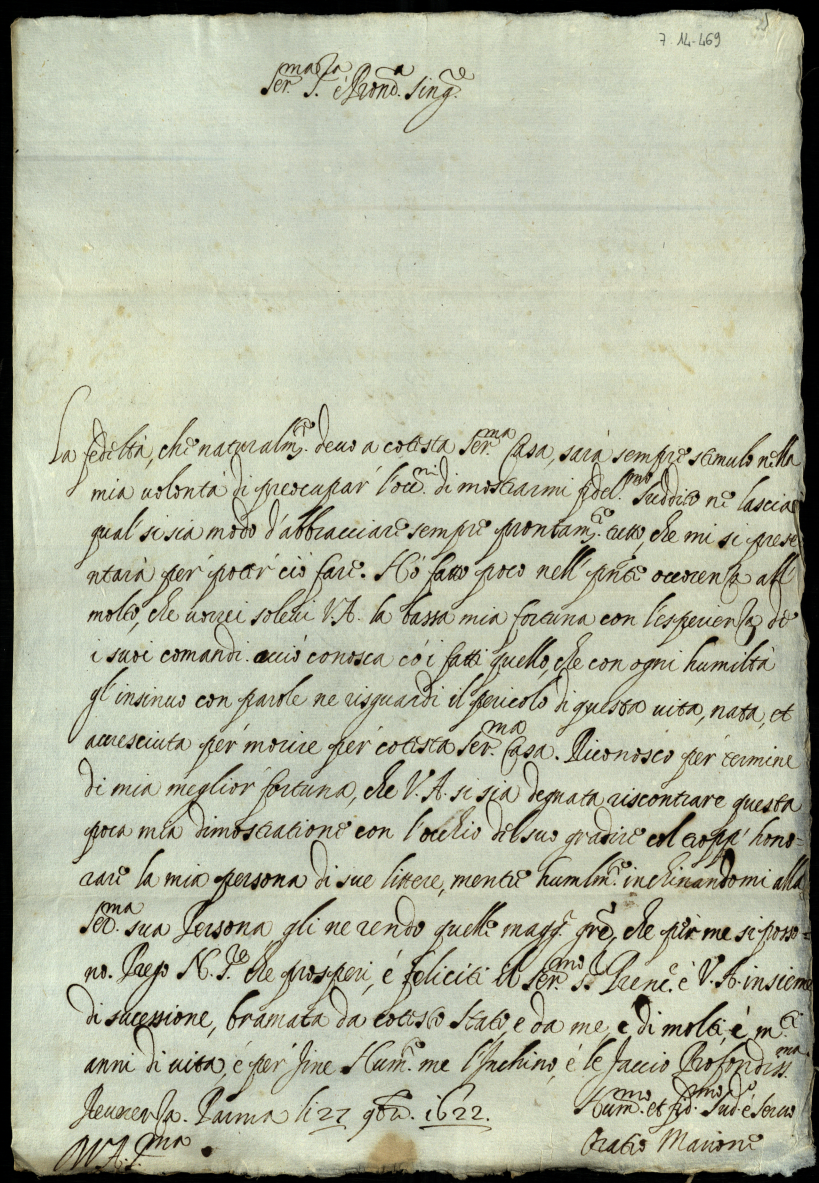 7. 14-469
25
Ser.ma S.ra è Pron.a Sing.re
La fedeltà, che naturalm.te deuo a cotesta Ser.ma Casa, sarà sempre stimulo nella
mia uolontà di preocupar' l'occ.ni di mostrarmi fidel.mo suddito ne lasciar
qual si sia modo d'abbracciare sempre prontam.te tutto, che mi si prese-
ntarà per' poter' ciò fare. Hò fatto poco nell' pnte occorenza all
molto, che uorrei soleui V.A. la bassa mia fortuna con l'esperienza de
i suoi comandi. acciò conosca cò i fatti quello, che con ogni humiltà
gl'insinuo con parole ne risguardi il pericolo di questa uita, nata, et
accresciuta per' morire per' cotesta Ser.ma Casa. Riconosco per' termine
di mia meglior' fortuna, che V.A. si sia degnata riscontrare questa
poca mia dimostratione con l'occhio del suo gradire col tropp' hono=
rare la mia persona di sue littere, mentre humilm.te inchinandomi alla
Ser.ma sua Persona gli ne rendo quelle magg.ri gre, che per me si posso=
no. Prego N.S.re che prosperi, é feliciti el Ser.mo S.r Prenc.e è V.A. insieme
di sucessione, bramata da cotesto Stato e da me, e di molti, é m.ti
anni di uita, é per' fine Hum.te me l'Inchino, é le faccio Profondiss.ma
Reuerenza. Parma li 27 9bre. 1622.
D.V.A.S.ma
Hum.mo et fid.mo Sud.o é seruo
Oratio Marione